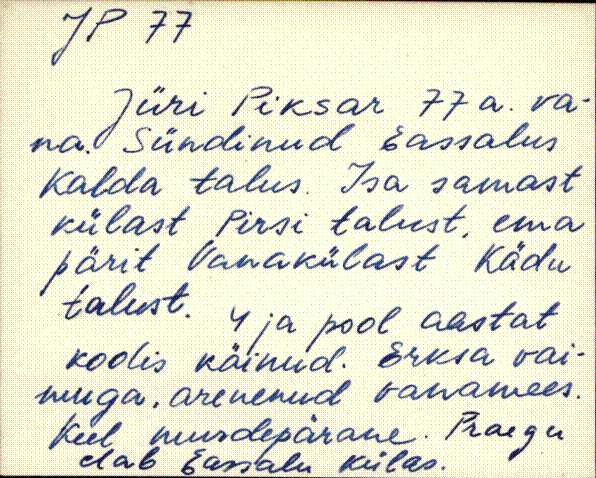 JP 77
Jüri Piksar 77 a. va-
na. Sündinud Eassalus
Kalda talus. Isa samast
külast Pirsi talust, ema
pärit Vanakülast Kädu
talust. 4 ja pool aastat
koolis käinud. Erksa vai-
muga, arenenud vanamees.
Keel murdepärane. Praegu
elab Eassalu külas.